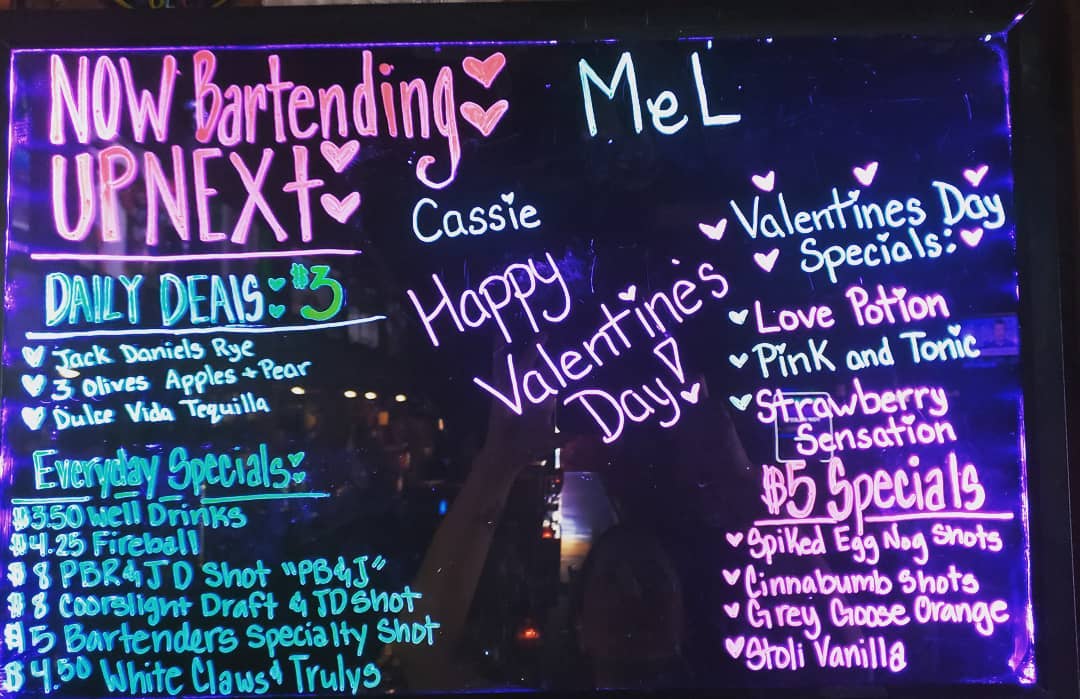 NOW Bartending
MeL
UPNEXt
Cassie
DAILY DEALS: $3
Jack Daniels Rye
3 Olives Apples + Pear
Dulce Vida Tequilla
Everyday Specials:
$3.50 Well Drinks
$4.25 Fireball
$8 PBR & JD Shot "PB&J"
$8 Coorslight Draft & JD Shot
$5 Bartenders Specialty Shot
$4.50 White Claws & Trulys
Happy
Valentine's
Day!
Valentines Day
Specials:
Love Potion
Pink and Tonic
Strawberry
Sensation
$5 Specials
Spiked Egg Nog Shots
Cinnabumb Shots
Grey Goose Orange
Stoli Vanilla